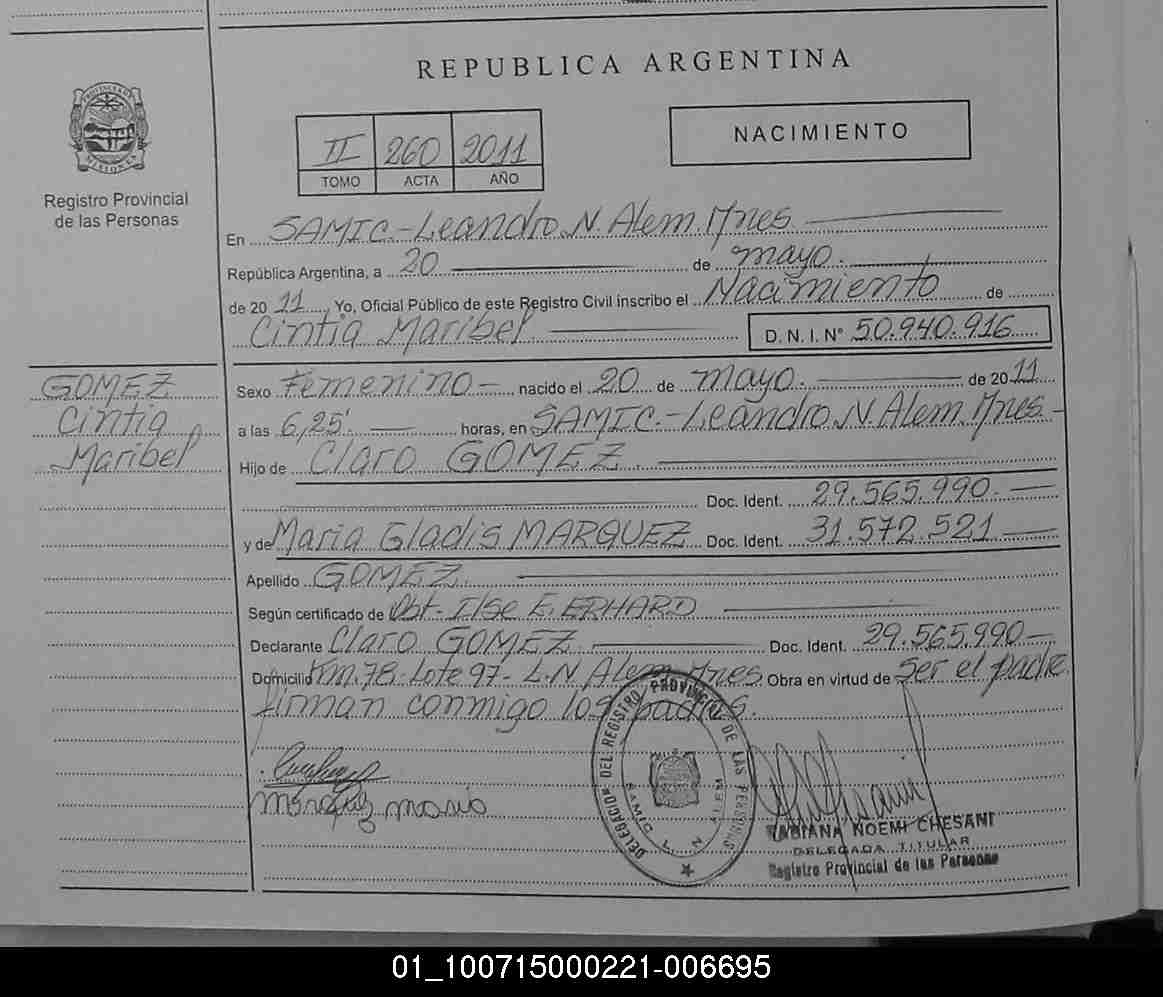 REPUBLICA ARGENTINA
PROVINCIA DE MISIONES
Registro Provincial
de las Personas
II 260 2011
TOMO ACTA AÑO
NACIMIENTO
En SAMIC.-Leandro N. Alem. Mnes
República Argentina, a 20 de mayo.
de 2011, Yo, Oficial Público de este Registro Civil inscribo el Nacimiento de
Cintia Maribel D. N. I. Nº 50.940.916
GOMEZ
Cintia
Maribel
Sexo Femenino - nacido el 20 de mayo. de 2011
a las 6,25' horas, en SAMIC.-Leandro N. Alem. Mnes -
Hijo de Claro GOMEZ
Doc. Ident. 29.565.990.
y de Maria Gladis MARQUEZ Doc. Ident. 31.572.521
Apellido GOMEZ
Según certificado de Obst- Ilse E. ERHARD
Declarante Claro GOMEZ Doc. Ident. 29.565.990
Domicilio Km.78.-Lote 97- L.N Alem Mnes. Obra en virtud de Ser el padre
firman conmigo los padres.
DELEGACION DEL REGISTRO PROVINCIAL DE LAS PERSONAS
SAMIC L. N. ALEM
FABIANA NOEMI CHESANI
DELEGADA TITULAR
Registro Provincial de las Personas
01_100715000221-006695